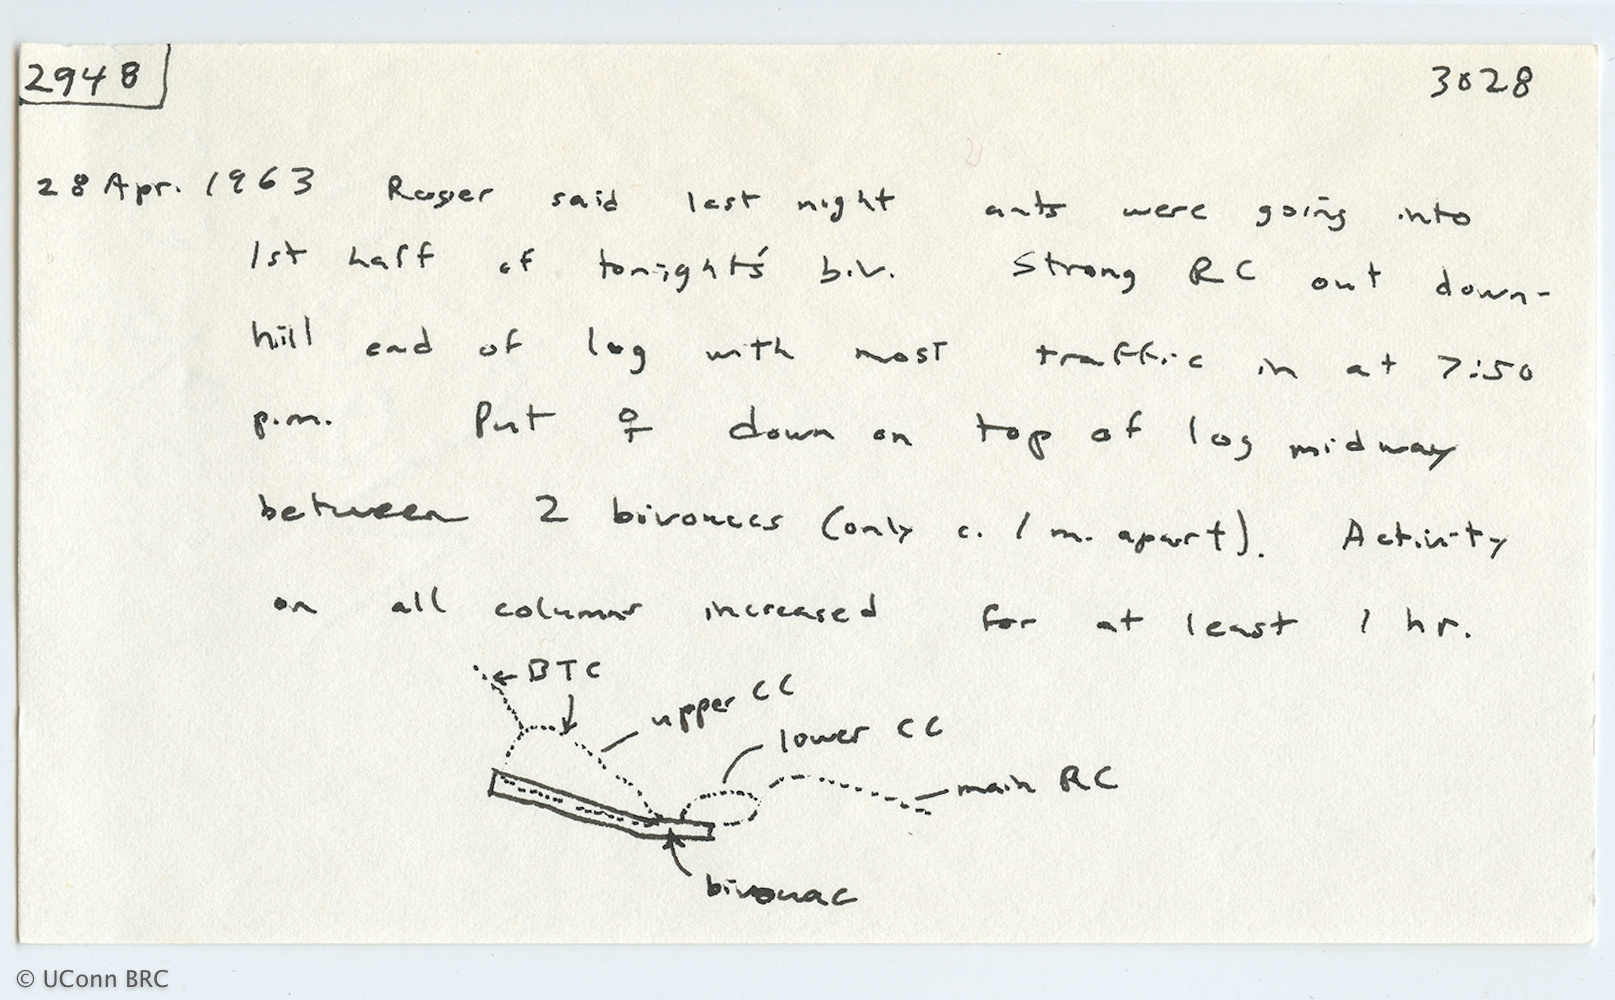 2948
3028
28 Apr. 1963 Roger said last night ants were going into
1st half of tonight's biv. Strong RC out down-
hill end of log with most traffic in at 7:50
p.m. Put ♀ down on top of log midway
between 2 bivouacs (only c. 1 m. apart). Activity
on all columns increased for at least 1 hr.
BTC
upper CC
lower CC
main RC
bivouac
© UConn BRC